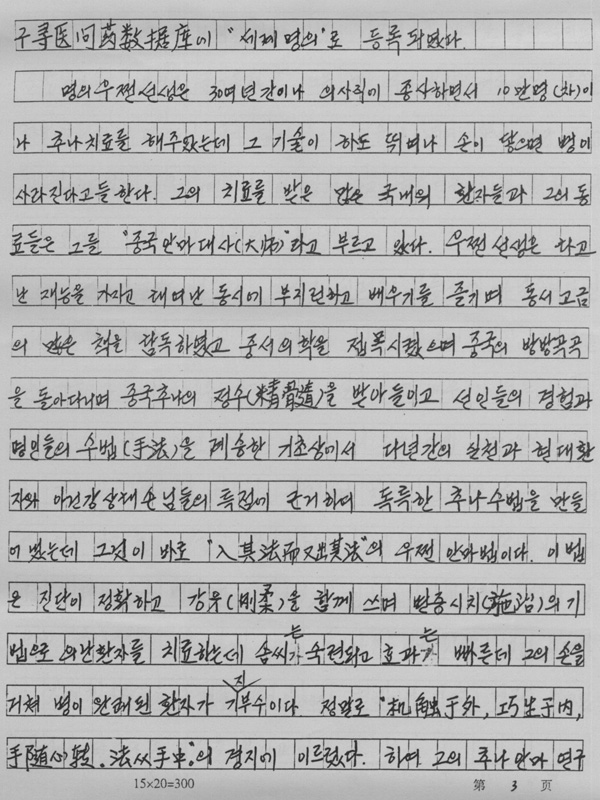 구寻医问药数据库에 "세계명의"로 등록되였다.
명의우쩐선생은 30여년간이나 의사직에 종사하면서 10만명(차)이
나 추나치료를 해주었는데 그 기술이 하도 뛰여나 손이 닿으면 병이
사라진다고들한다. 그의 치료를 받은 많은 국내외 환자들과 그의 동
료들은 그를 "중국안마대사(大师)"라고 부르고 있다. 우쩐선생은 타고
난 재능을 가지고 태여난 동시에 부지런하고 배우기를 즐기며 동서고금
의 많은 책을 탐독하였고 중서의학을 접목시켰으며 중국의 방방곡곡
을 돌아다니며 중국추나의 정수(精骨道)을 받아들이고 선인들의 경험과
명인들의 수법(手法)을 계승한 기초상에서 다년간의 실천과 현대환
자와 아건강상태손님들의 특점에 근거하여 독특한 추나수법을 만들
어냈는데 그것이 바로 "入其法而又出其法"의 우쩐 안마법이다. 이법
은 진단이 정확하고 강유(刚柔)을 함께 쓰며 변증시치(施治)의 기
법으로 의난환자를 치료하는데 솜씨는 숙련되고 효과는 빠른데 그의 손을
거쳐 병이 완쾌된 환자가 기지부수이다. 정말로 "机触于外, 巧生于内,
手随心转, 法从手出"의 경지에 이르렀다. 하여 그의 추나안마 연구
15×20=300 第 3 页